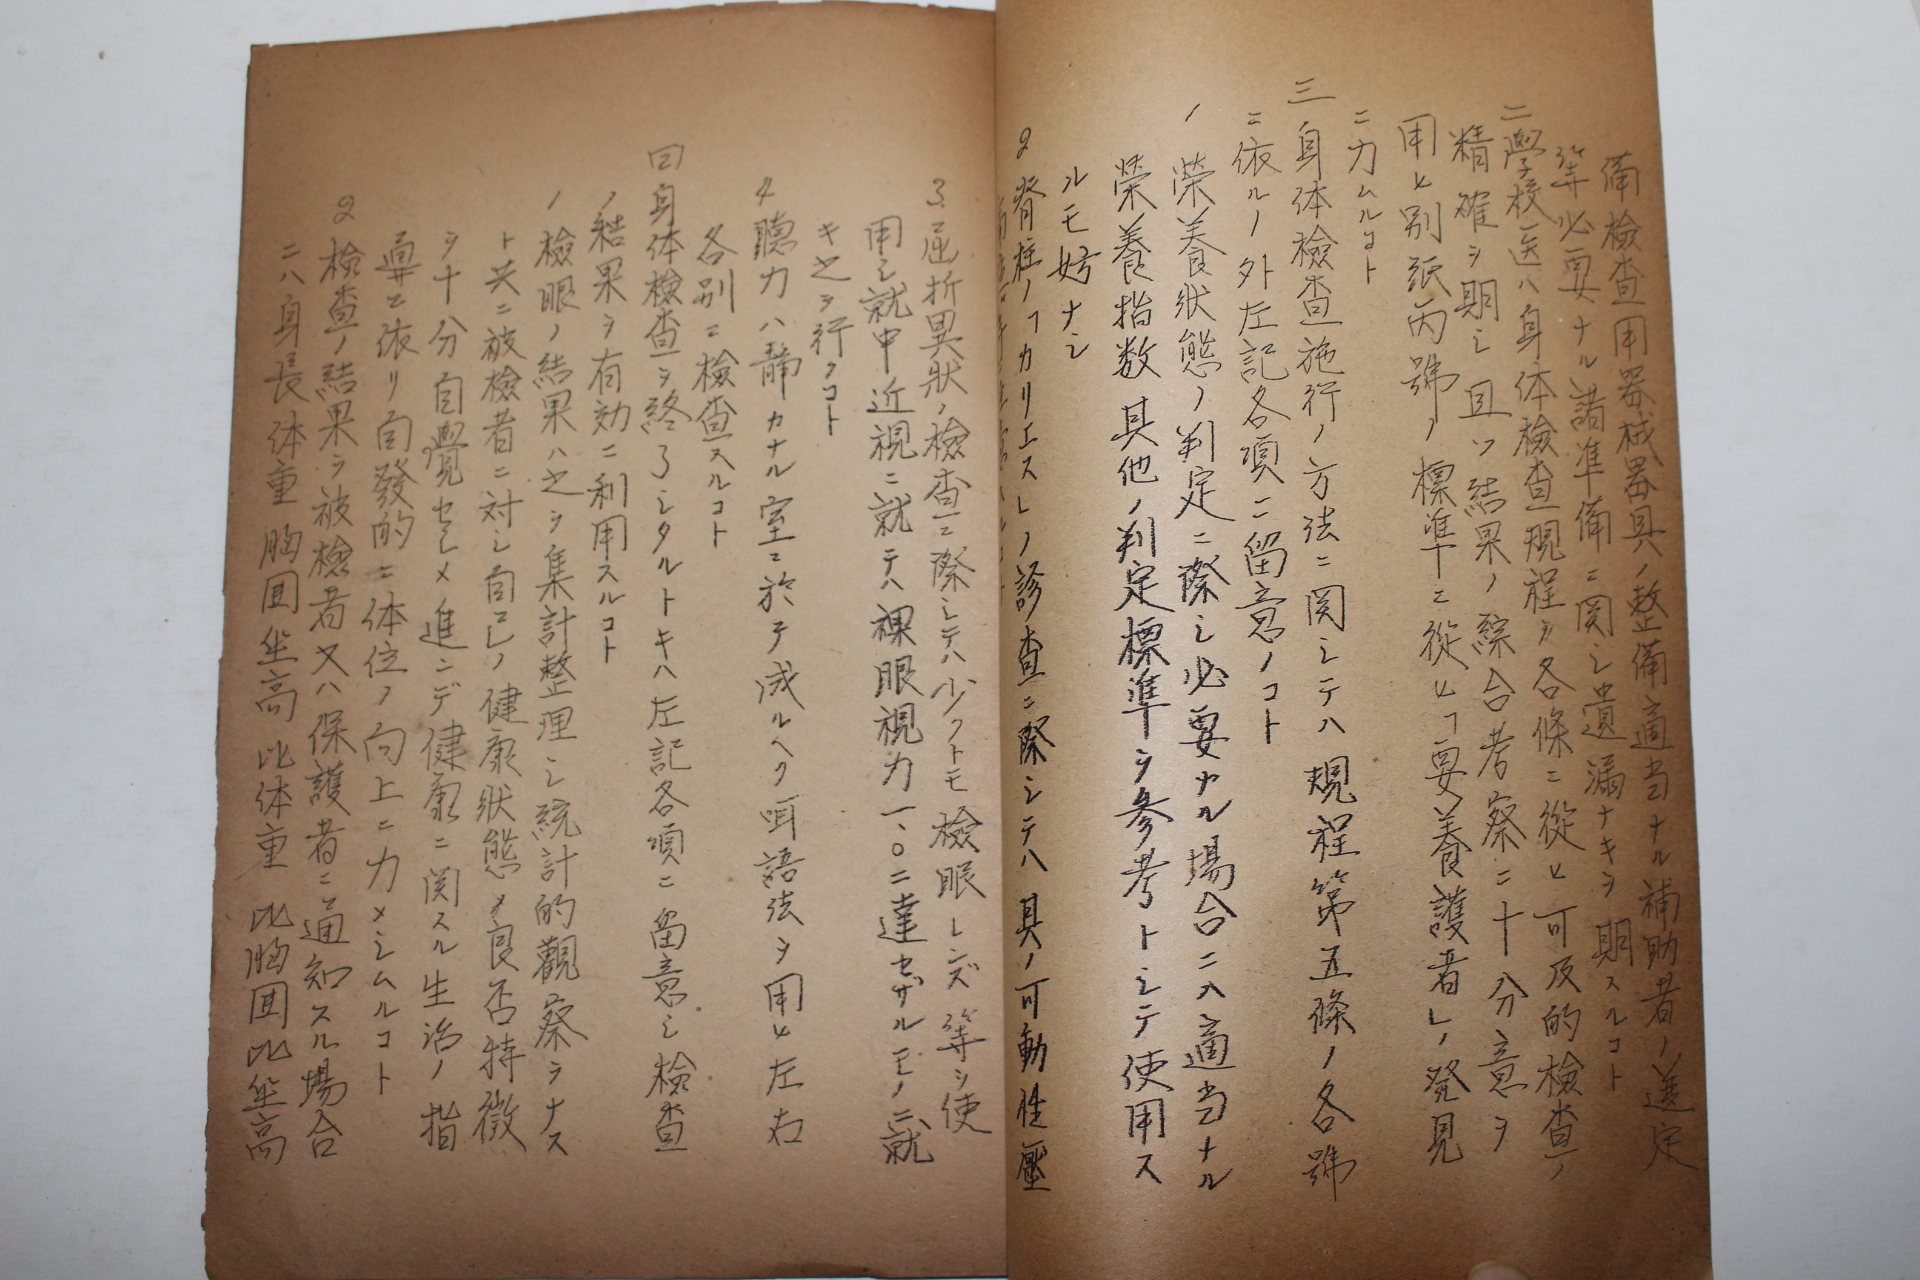 備検査用器械器具ノ整備適当ナル補助者ノ選定
等必要ナル諸準備ニ関シ遺漏ナキヲ期スルコト
二學校医ハ身体検査規程ヲ各條ニ從ヒ可及的検査ノ
精確ヲ期シ且ツ結果ノ綜合考察ニ十分意ヲ
用ヒ別紙丙號ノ標準ニ從ヒ「要養護者」ノ発見
ニ力ムルコト
三身体検査施行ノ方法ニ関シテハ規程第五條ノ各號
ニ依ルノ外左記各項ニ留意ノコト
1 榮養状態ノ判定ニ際シ必要ナル場合ニハ適当ナル
榮養指数其他ノ判定標準ヲ参考トシテ使用ス
ルモ妨ナシ
2 脊柱ノ「カリエス」ノ診査ニ際シテハ其ノ可動性壓
3.屈折異状ノ検査ニ際シテハ少クトモ検眼レンズ等ヲ使
用シ就中近視ニ就テハ裸眼視力一、〇ニ達セザルモノニ就
キ之ヲ行フコト
4 聽力ハ静カナル室ニ於テ成ルヘク咡語法ヲ用ヒ左右
各別ニ検査スルコト
四身体検査ヲ終了シタルトキハ左記各項ニ留意シ検査
ノ結果ヲ有効ニ利用スルコト
1 検眼ノ結果ハ之ヲ集計整理シ統計的觀察ヲナス
ト共ニ被検者ニ対シ自己ノ健康状態ノ良否特徴
ヲ十分自覺セシメ進ンデ健康ニ関スル生活ノ指
導ニ依リ自發的ニ体位ノ向上ニ力メシムルコト
2 検査ノ結果ヲ被検者又ハ保護者ニ通知スル場合
ニハ身長体重胸囲坐高比体重比胸囲比坐高